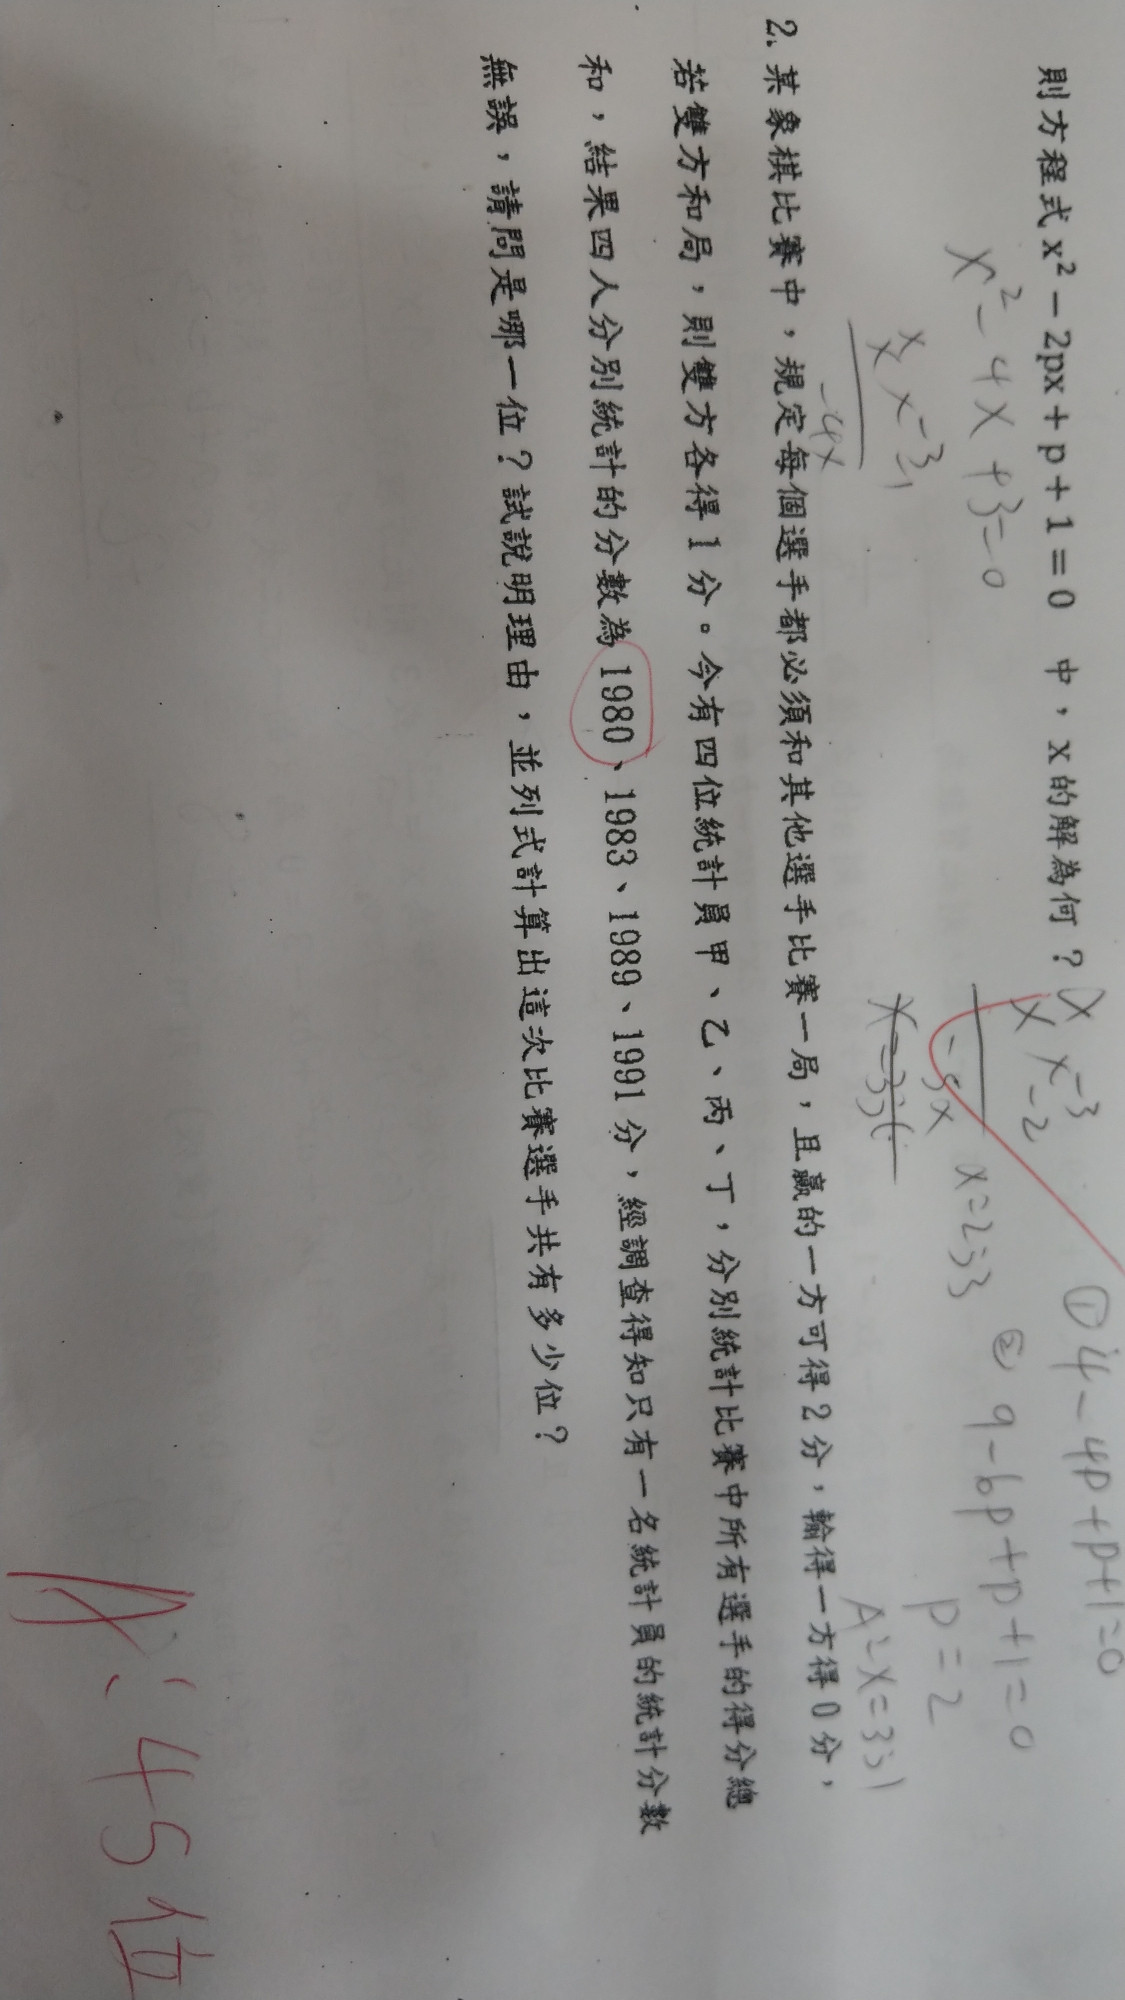 則方程式 x² − 2px + p + 1 = 0 中，x 的解為何？
x² - 4x + 3 = 0
x -3
x -1
-4x
x -3
x -2
-5x
x=2;3
① 4-4p+p+1=0
② 9-6p+p+1=0
p=2
A: x=3;1
2. 某象棋比賽中，規定每個選手都必須和其他選手比賽一局，且贏的一方可得 2 分，輸得一方得 0 分，
若雙方和局，則雙方各得 1 分。今有四位統計員甲、乙、丙、丁，分別統計比賽中所有選手的得分總
和，結果四人分別統計的分數為 1980、1983、1989、1991 分，經調查得知只有一名統計員的統計分數
無誤，請問是哪一位？試說明理由，並列式計算出這次比賽選手共有多少位？
A: 45位